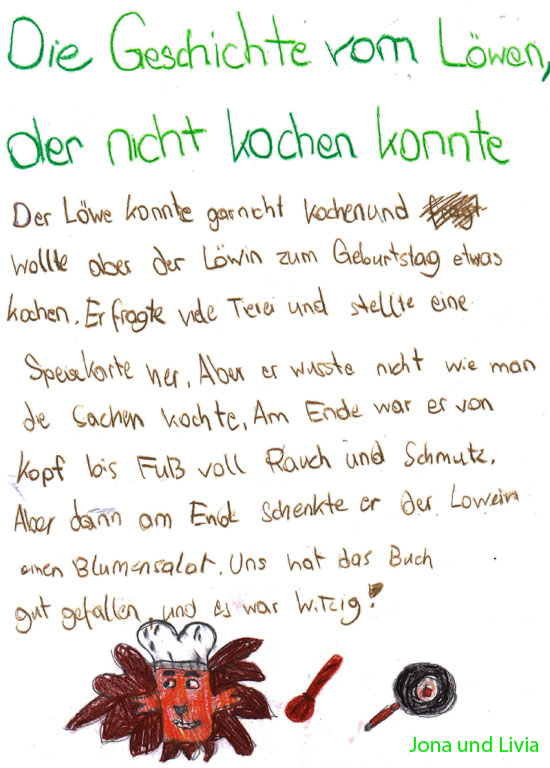 Die Geschichte vom Löwen,
der nicht kochen konnte
Der Löwe konnte garnicht kochen und
wollte aber der Löwin zum Geburtstag etwas
kochen. Er fragte viele Tierei und stellte eine
Speisekarte her. Aber er wusste nicht wie man
die Sachen kochte. Am Ende war er von
Kopf bis Fuß voll Rauch und Schmutz.
Aber dann am Ende schenkte er der Lowein
einen Blumensalat. Uns hat das Buch
gut gefallen, und es war witzig!
Jona und Livia